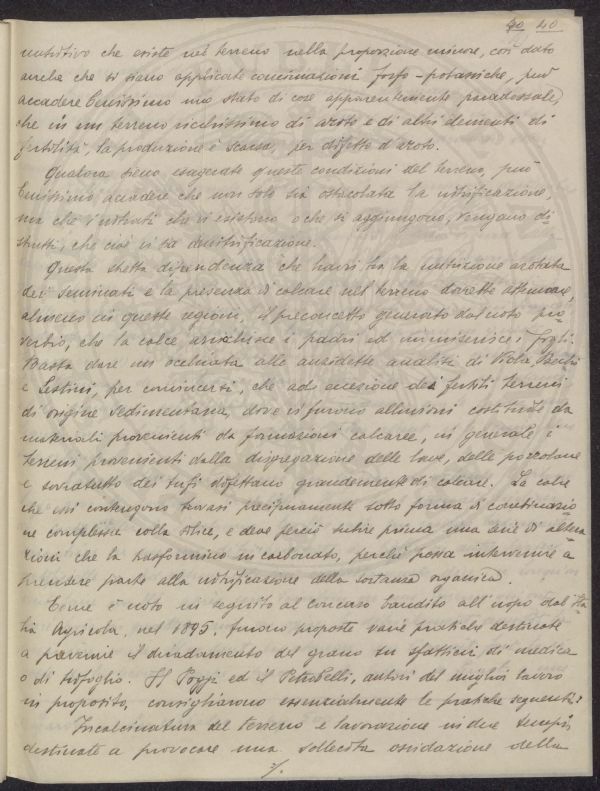 40 40
nutritivo che esiste nel terreno nella proporzione minore, così dato
anche che si siano applicate concimazioni fosfo-potassiche, può
accadere benissimo uno stato di cose apparentemente paradossale,
che in un terreno ricchissimo di azoto e di altri elementi di
fertilità, la produzione è scarsa, per difetto d'azoto.
Qualora sieno esagerate queste condizioni del terreno, può
benissimo accadere che non solo sia ostacolata la nitrificazione,
ma che i nitrati che vi esistono o che si aggiungono, vengano di-
strutti, che cioè vi sia denitrificazione.
Questa stretta dipendenza che havvi tra la nutrizione azotata
dei seminati e la presenza di calcare nel terreno dovrebbe attenuare,
almeno in queste regioni, il preconcetto generato dal noto pro-
verbio, che la calce arricchisce i padri ed immiserisce i figli.
Basta dare un'occhiata alle anzidette analisi di
e Sestini, per convincersi, che ad eccezione dei fertili terreni
di origine sedimentaria, dove vi furono alluvioni costituite da
materiali provenienti da formazioni calcaree, in generale i
terreni provenienti dalla disgregazione delle lave, delle pozzolane
e sovratutto dei tufi difettano grandemente di calcare. La calce
che essi contengono trovasi precipuamente sotto forma di combinazio-
ne complessa colla silice, e deve perciò subire prima una serie di altera-
zioni che la trasformino in carbonato, perchè possa intervenire a
prendere parte alla nitrificazione della sostanza organica.
Come è noto in seguito al concorso bandito all'uopo dall'Ita-
lia Agricola, nel 1895, furono proposte varie pratiche destinate
a prevenire il diradamento del grano su sfatticci di medica
o di trifoglio. Il Poggi ed il Petrobelli, autori del miglior lavoro
in proposito, consigliarono essenzialmente le pratiche seguenti:
Incalcinatura del terreno e lavorazione in due tempi
destinate a provocare una sollecita ossidazione della
./.